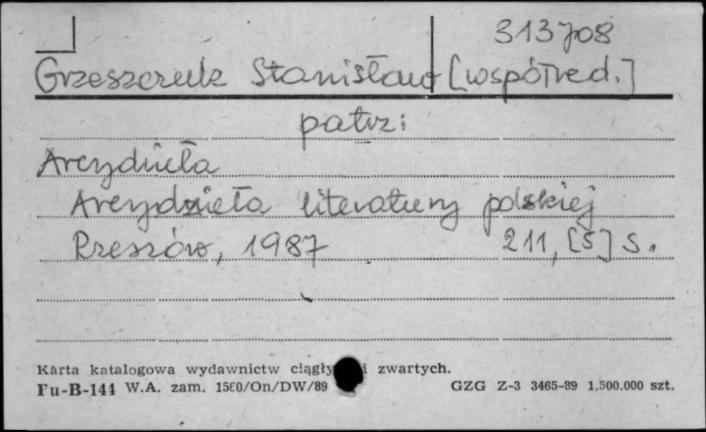 313708
Grzeszczuk Stanisław [współred.]
patrz:
Arcydzieła
Arcydzieła literatury polskiej
Rzeszów, 1987 211, [5] s.
Karta katalogowa wydawnictw ciągły i zwartych.
Fu-B-144 W.A. zam. 1560/On/DW/89 GZG Z-3 3465-89 1.500.000 szt.